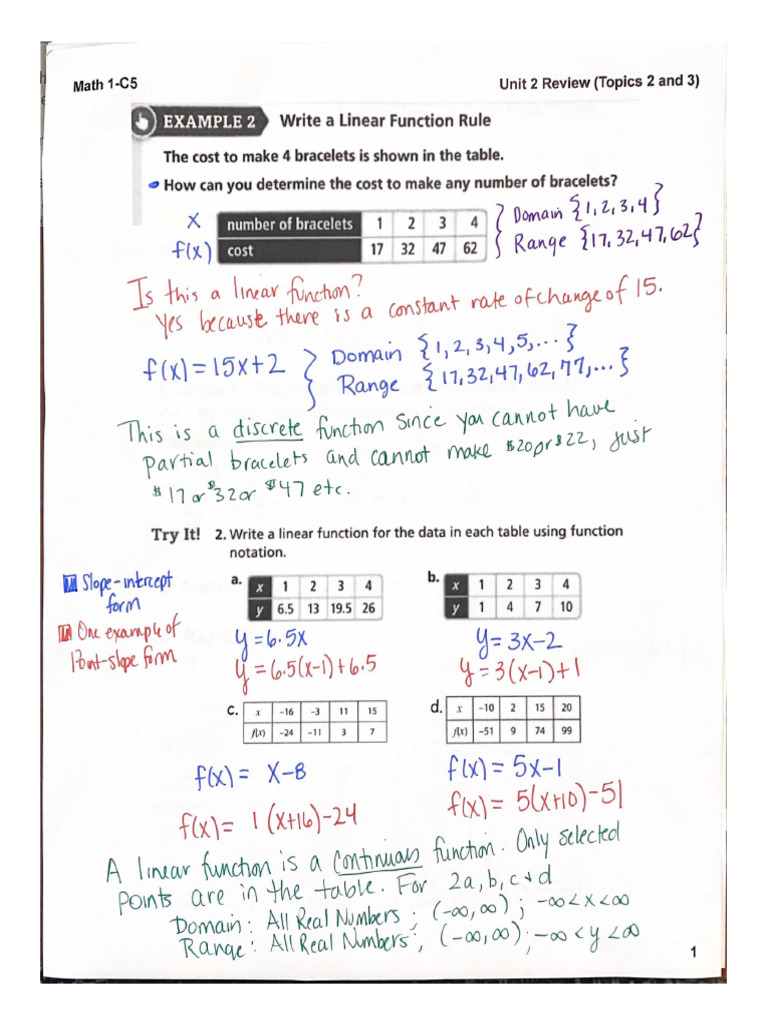 Math 1-C5 Unit 2 Review (Topics 2 and 3)
EXAMPLE 2 Write a Linear Function Rule
The cost to make 4 bracelets is shown in the table.
How can you determine the cost to make any number of bracelets?
x number of bracelets 1 2 3 4 } Domain {1,2,3,4}
f(x) cost 17 32 47 62 Range {17,32,47,62}
Is this a linear function?
Yes because there is a constant rate of change of 15.
f(x)=15x+2 } Domain {1,2,3,4,5,...}
Range {17,32,47,62,77,...}
This is a discrete function since you cannot have
partial bracelets and cannot make $20 or $22, just
$17 or $32 or $47 etc.
Try It! 2. Write a linear function for the data in each table using function
notation.
Slope-intercept
form
One example of
Point-slope form
a. x 1 2 3 4
y 6.5 13 19.5 26
y=6.5x
y=6.5(x-1)+6.5
b. x 1 2 3 4
y 1 4 7 10
y=3x-2
y=3(x-1)+1
c. x -16 -3 11 15
f(x) -24 -11 3 7
f(x)= x-8
f(x)= 1(x+16)-24
d. x -10 2 15 20
f(x) -51 9 74 99
f(x)= 5x-1
f(x)= 5(x+10)-51
A linear function is a continuous function. Only selected
points are in the table. For 2a, b, c + d
Domain: All Real Numbers; (-∞,∞); -∞<x<∞
Range: All Real Numbers; (-∞,∞); -∞<y<∞
1